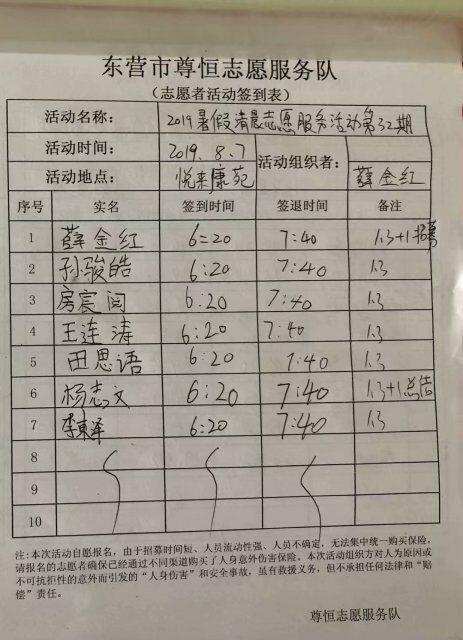 东营市尊恒志愿服务队
(志愿者活动签到表)
活动名称: 2019暑假清晨志愿服务活动第32期
活动时间: 2019.8.7 活动组织者: 薛金红
活动地点: 悦来康苑
序号 实名 签到时间 签退时间 备注
1 薛金红 6:20 7:40 1.3+1招募
2 孙骏皓 6:20 7:40 1.3
3 房宸阅 6:20 7:40 1.3
4 王连涛 6:20 7:40 1.3
5 田思语 6:20 7:40 1.3
6 杨志文 6:20 7:40 1.3+1总结
7 李東泽 6:20 7:40 1.3
8
9
10
注:本次活动自愿报名,由于招募时间短、人员流动性强、人员不确定,无法集中统一购买保险,
请报名的志愿者确保已经通过不同渠道购买了人身意外伤害保险。本次活动组织方对人为原因或
不可抗拒性的意外而引发的“人身伤害”和安全事故,虽有救援义务,但不承担任何法律和“赔
偿”责任。
尊恒志愿服务队